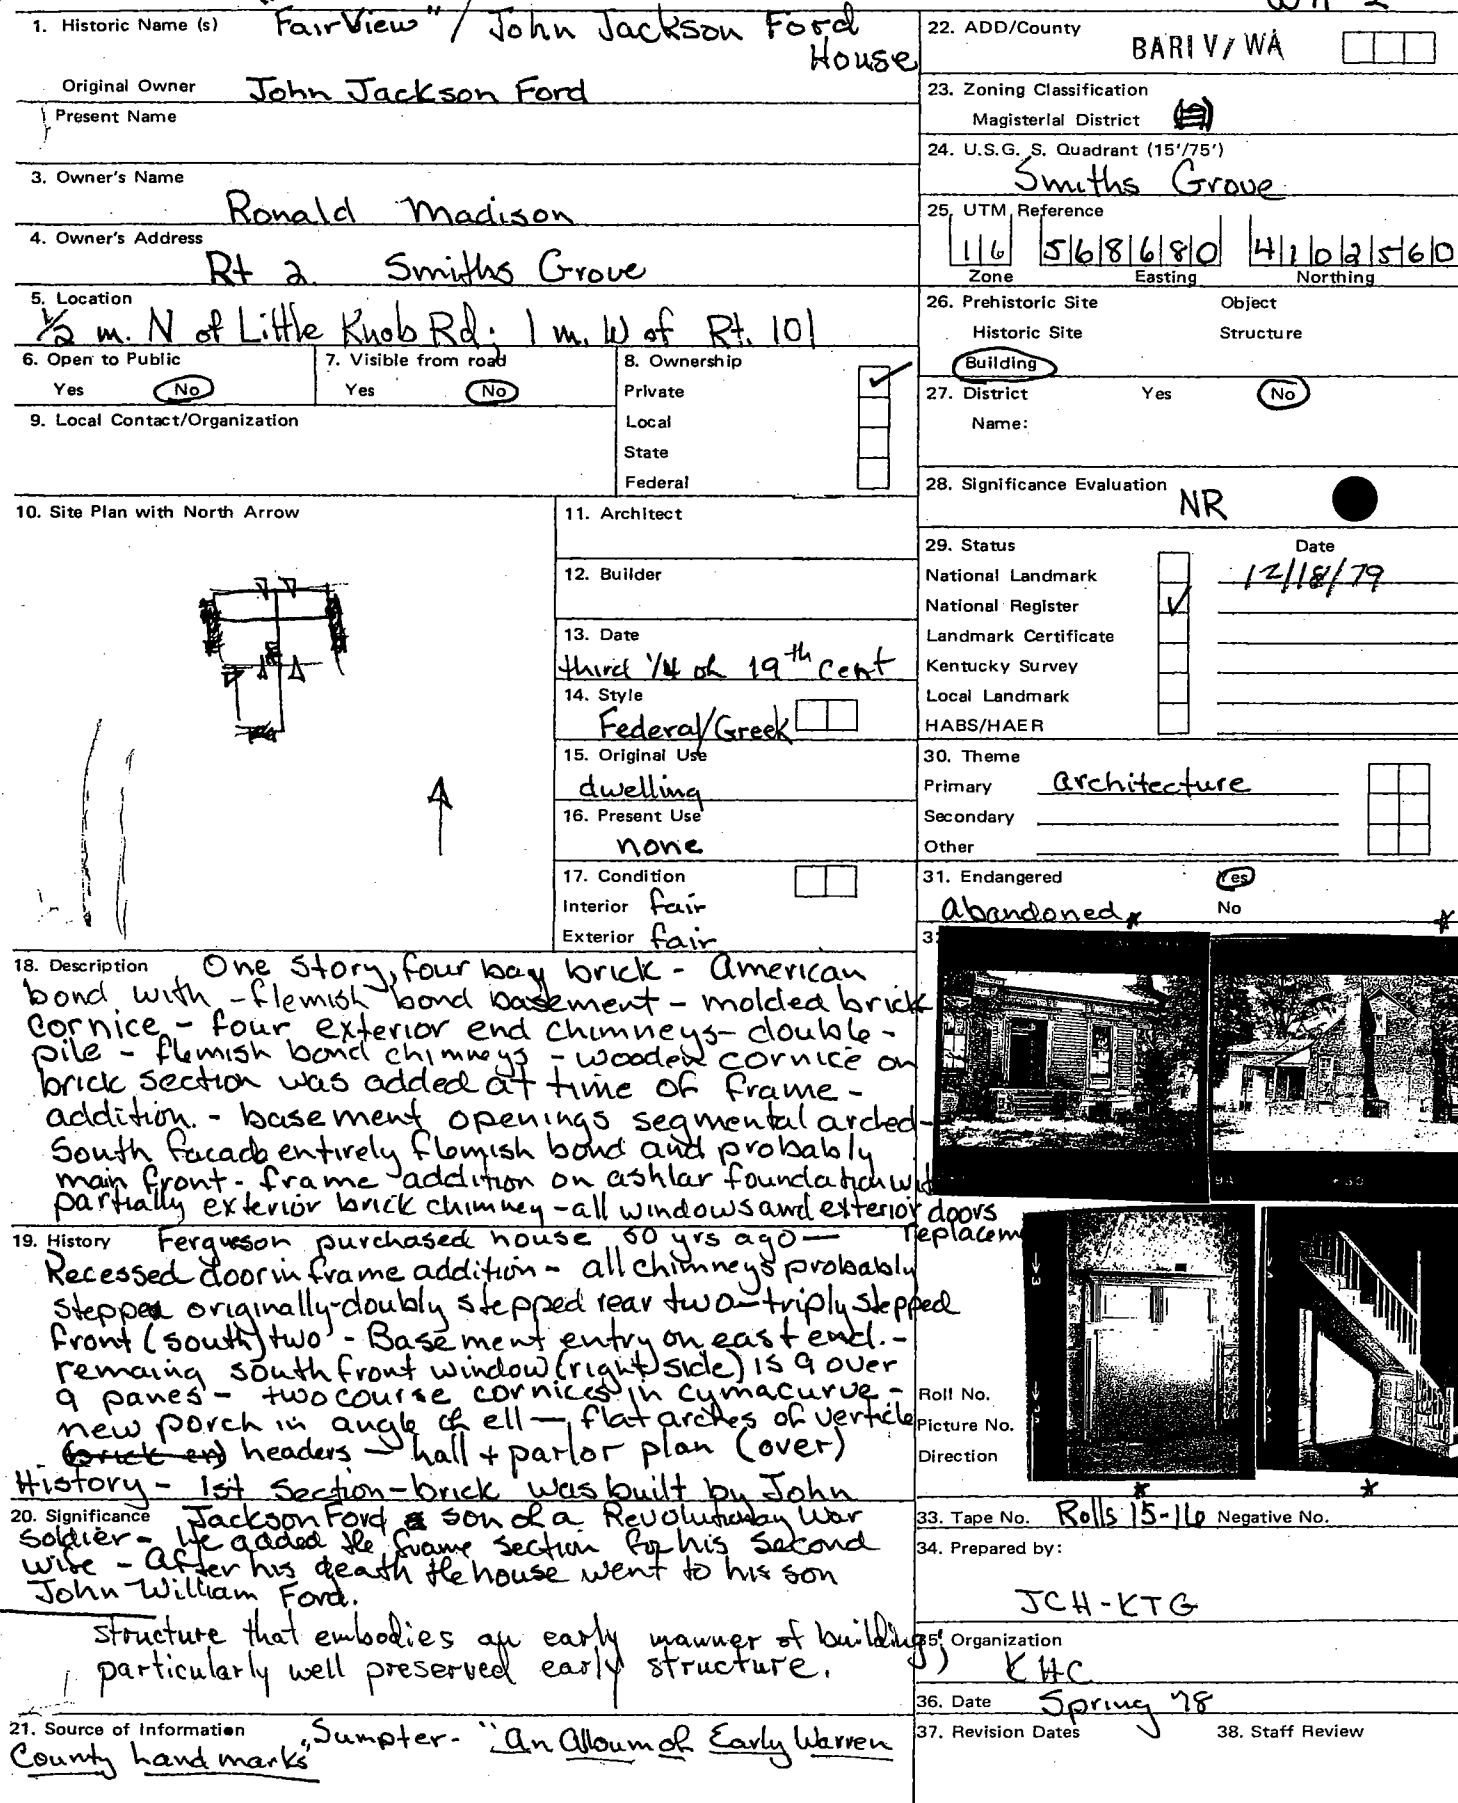 1. Historic Name (s) "FairView" / John Jackson Ford
House
Original Owner John Jackson Ford
Present Name
3. Owner's Name
Ronald Madison
4. Owner's Address
Rt 2 Smiths Grove
5. Location
1/2 m. N of Little Knob Rd; 1 m. W of Rt. 101
6. Open to Public
Yes No
7. Visible from road
Yes No
8. Ownership
Private
Local
State
Federal
9. Local Contact/Organization
10. Site Plan with North Arrow
11. Architect
12. Builder
13. Date
third 1/4 of 19th Cent
14. Style
Federal/Greek
15. Original Use
dwelling
16. Present Use
none
17. Condition
Interior fair
Exterior fair
18. Description One Story, four bay brick - American
bond with - flemish bond basement - molded brick
cornice - four exterior end chimneys - double -
pile - flemish bond chimneys - wooden cornice on
brick section was added at time of frame -
addition. - basement openings segmental arched -
South facade entirely flemish bond and probably
main front - frame addition on ashlar foundation
partially exterior brick chimney - all windows and exterior doors
replacem
19. History Ferguson purchased house 60 yrs ago —
Recessed door in frame addition - all chimneys probably
stepped originally - doubly stepped rear two - triply stepped
front (south) two - Basement entry on east end. -
remaing south front window (right side) is 9 over
9 panes - two course cornices in cymacurve -
new porch in angle of ell — flat arches of verticle
headers - hall + parlor plan (over)
History - 1st Section - brick was built by John
20. Significance Jackson Ford a son of a Revolutionary War
soldier - he added the frame section for his second
wife - After his death the house went to his son
John William Ford.
structure that embodies an early manner of building;
particularly well preserved early structure.
21. Source of Information Sumpter - "An Album of Early Warren
County Landmarks"
22. ADD/County BARIV/WA
23. Zoning Classification
Magisterial District
24. U.S.G. S. Quadrant (15'/75')
Smiths Grove
25. UTM Reference
16 568680 4102560
Zone Easting Northing
26. Prehistoric Site Object
Historic Site Structure
Building
27. District Yes No
Name:
28. Significance Evaluation NR
29. Status Date
National Landmark 12/18/79
National Register
Landmark Certificate
Kentucky Survey
Local Landmark
HABS/HAER
30. Theme
Primary architecture
Secondary
Other
31. Endangered Yes
abandoned No
Roll No.
Picture No.
Direction
33. Tape No. Rolls 15-16 Negative No.
34. Prepared by:
JCH-KTG
35. Organization
KHC
36. Date Spring 78
37. Revision Dates 38. Staff Review